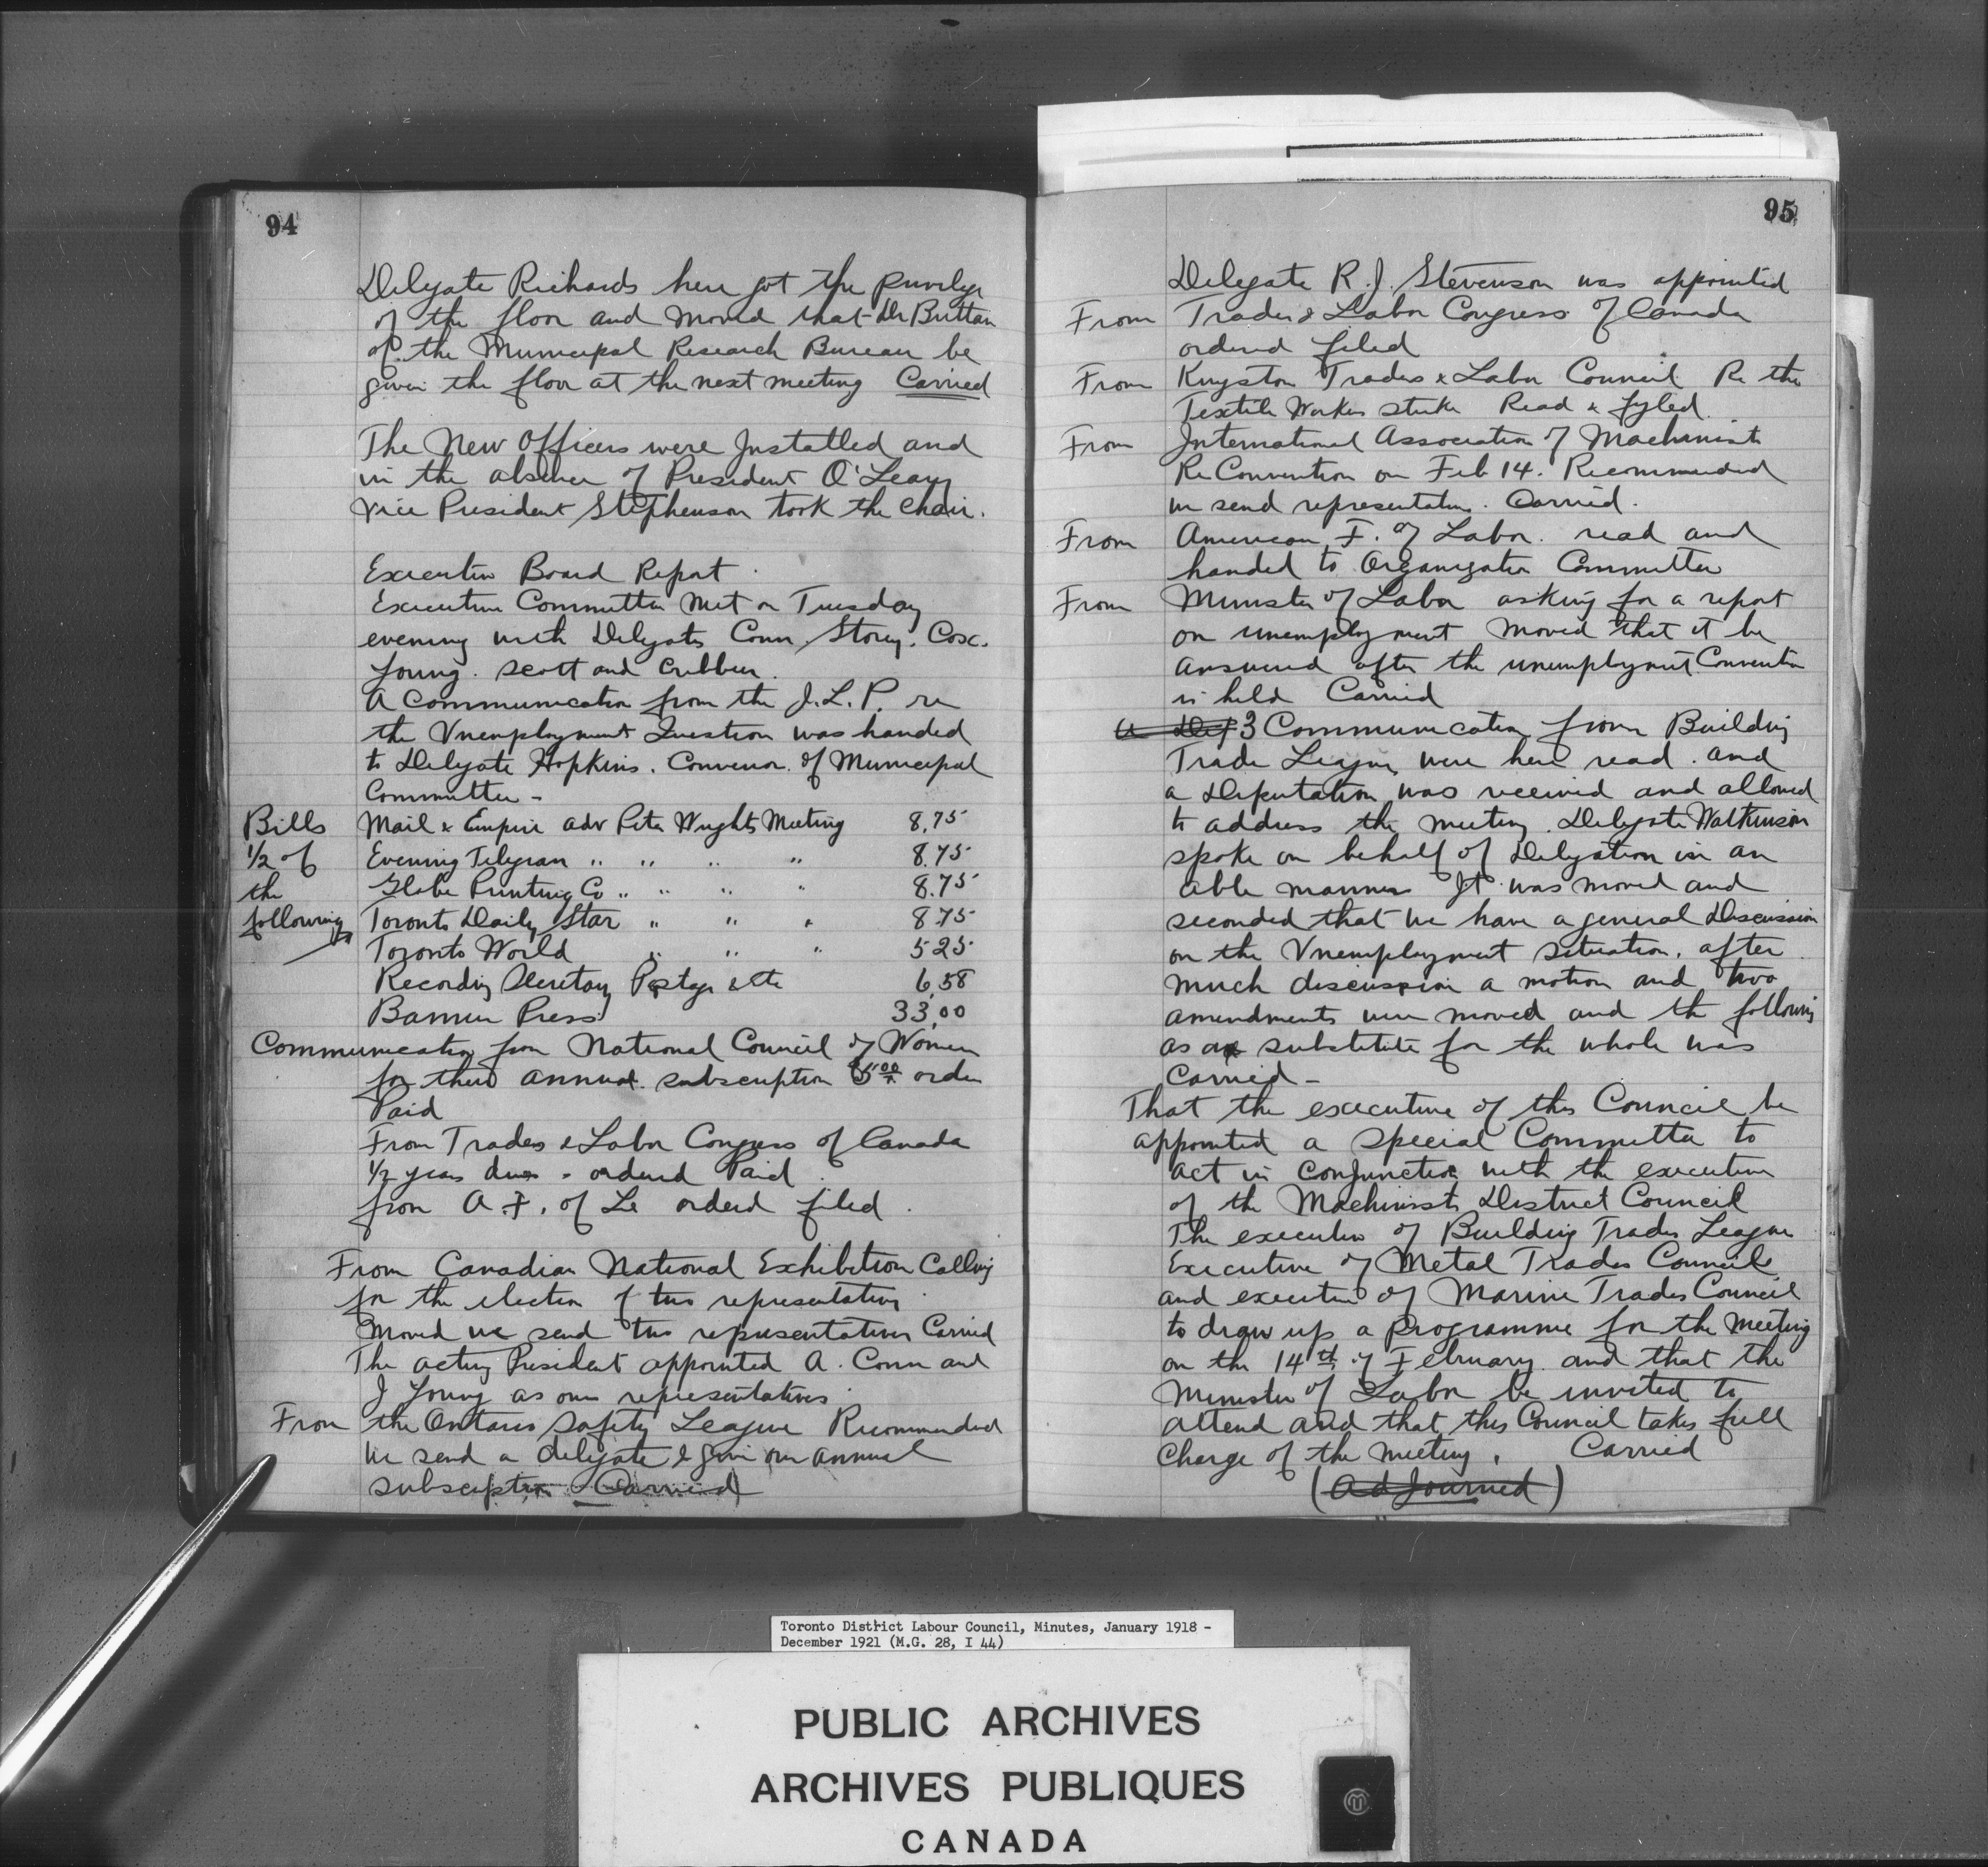 94
Delegate Richards here got the privilege
of the floor and moved that Dr Brittan
of the Municipal Research Bureau be
given the floor at the next meeting Carried
The New Officers were Installed and
in the absence of President O'Leary
Vice President Stephenson took the chair.
Executive Board Report
Executive Committee Met on Tuesday
evening with Delegates Conn. Storey. Cox.
Young. Scott and Cribben.
A Communication from the I.L.P. re
the Unemployment Question was handed
to Delegate Hopkins. Convenor of Municipal
Committee -
Bills Mail & Empire adv Peter Wrights Meeting 8.75
1/2 of Evening Telegram " " " " 8.75
the Globe Printing Co " " " " 8.75
following Toronto Daily Star " " " 8 75
Toronto World " " " 5 25
Recording Secretary Postage & etc 6.58
Banner Press 33.00
Communication from National Council of Women
for their annual subscription $5.00 order
Paid
From Trades & Labor Congress of Canada
1/2 years dues - orderd Paid
from A. F. of Le orderd filed.
From Canadian National Exhibition Calling
for the election of two representatives
Moved we send two representatives Carried
The acting President appointed A. Conn and
J Young as our representatives
From the Ontario Safety League Recommended
We send a delegate & give our annual
subscription Carried
95
Delegate R. J. Stevenson was appointed
From Trades & Labor Congress of Canada
ordered filed
From Kingston Trades & Labor Council Re the
Textile Workers strike Read & fyled.
From International Association of Machinists
Re Convention on Feb 14. Recommended
we send representatives. Carried.
From American F. of Labor. read and
handed to Organization Committee
From Minister of Labor asking for a report
on unemployment Moved that it be
answered after the unemployment Convention
is held Carried
a Dep 3 Communication from Building
Trade League were here read. and
a Deputation was received and allowed
to address the meeting. Delegate Watkinson
spoke on behalf of Delegation in an
able manner It was moved and
seconded that we have a general Discussion
on the Unemployment Situation. after
much discussion a motion and two
amendments were moved and the following
as a substitute for the whole was
Carried -
That the executive of this Council be
appointed a Special Committee to
act in conjunction with the executive
of the Machinists District Council
The executive of Building Trades League
Executive of Metal Trades Council
and executive of Marine Trades Council
to draw up a programme for the Meeting
on the 14th of February. and that the
Minister of Labor be invited to
attend and that this Council takes full
Charge of the meeting. Carried
(Adjourned)
Toronto District Labour Council, Minutes, January 1918 -
December 1921 (M.G. 28, I 44)
PUBLIC ARCHIVES
ARCHIVES PUBLIQUES
CANADA